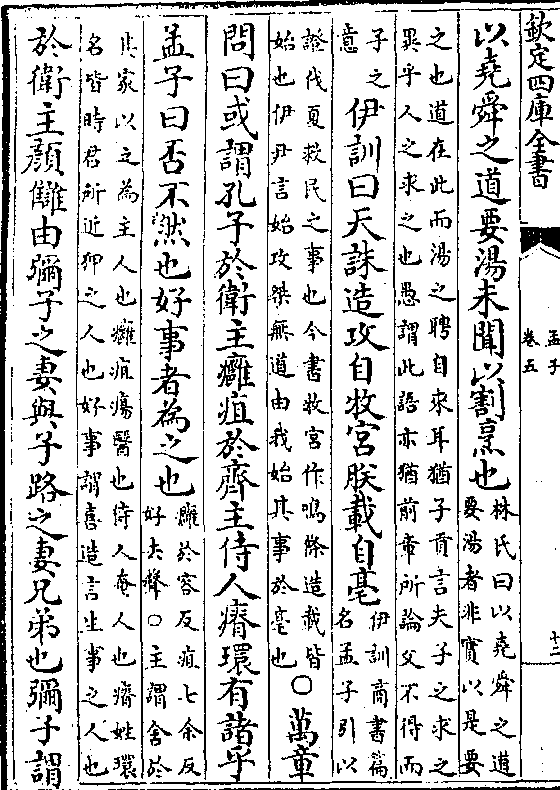 欽定四庫全書
孟子
卷五
十三
以堯舜之道要湯未聞以割烹也林氏曰以堯舜之道
要湯者非實以是要
之也道在此而湯之聘自來耳猶子貢言夫子之求之
異乎人之求之也愚謂此語亦猶前章所論父不得而
子之
意
伊訓曰天誅造攻自牧宮朕載自亳伊訓商書篇
名孟子引以
證伐夏救民之事也今書牧宮作鳴條造載皆
始也伊尹言始攻桀無道由我始其事於亳也○萬章
問曰或謂孔子於衛主癰疽於齊主侍人瘠環有諸乎
孟子曰否不然也好事者為之也癰於容反疽七余反
好去聲○主謂舍於
其家以之為主人也癰疽瘍醫也侍人奄人也瘠姓環
名皆時君所近狎之人也好事謂喜造言生事之人也
於衛主顏讎由彌子之妻與子路之妻兄弟也彌子謂